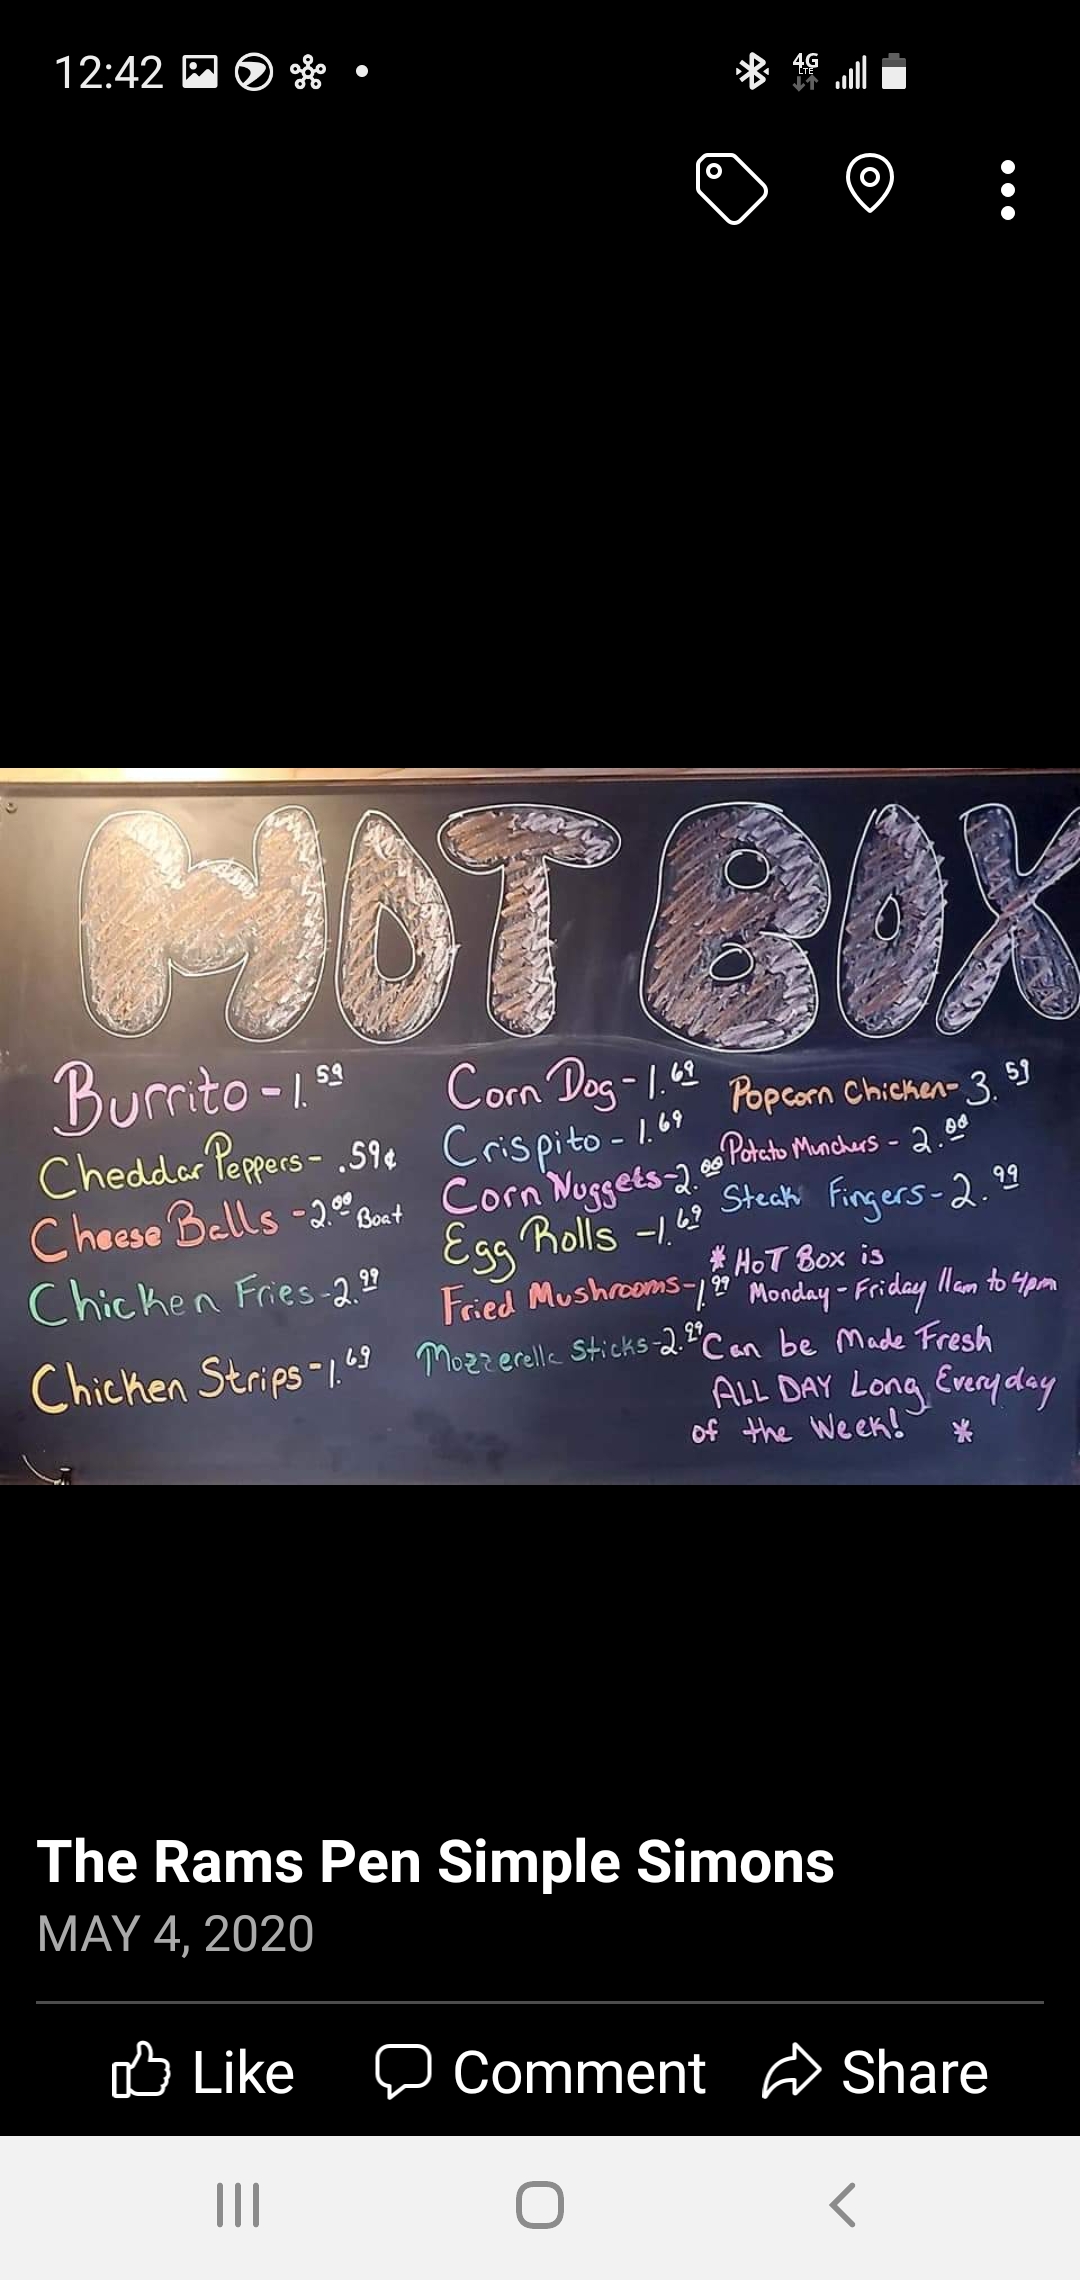 12:42
4G
LTE
HOT BOX
Burrito - 1.59
Cheddar Peppers - .59¢
Cheese Balls - 2.00 Boat
Chicken Fries - 2.99
Chicken Strips - 1.69
Corn Dog - 1.69
Crispito - 1.69
Corn Nuggets - 2.00
Egg Rolls - 1.69
Fried Mushrooms - 1.99
Mozzerella Sticks - 2.99
Popcorn Chicken - 3.59
Potato Munchers - 2.00
Steak Fingers - 2.99
* HOT BOX is
Monday - Friday 11am to 4pm
Can be Made Fresh
ALL DAY Long Everyday
of the Week! *
The Rams Pen Simple Simons
MAY 4, 2020
Like Comment Share